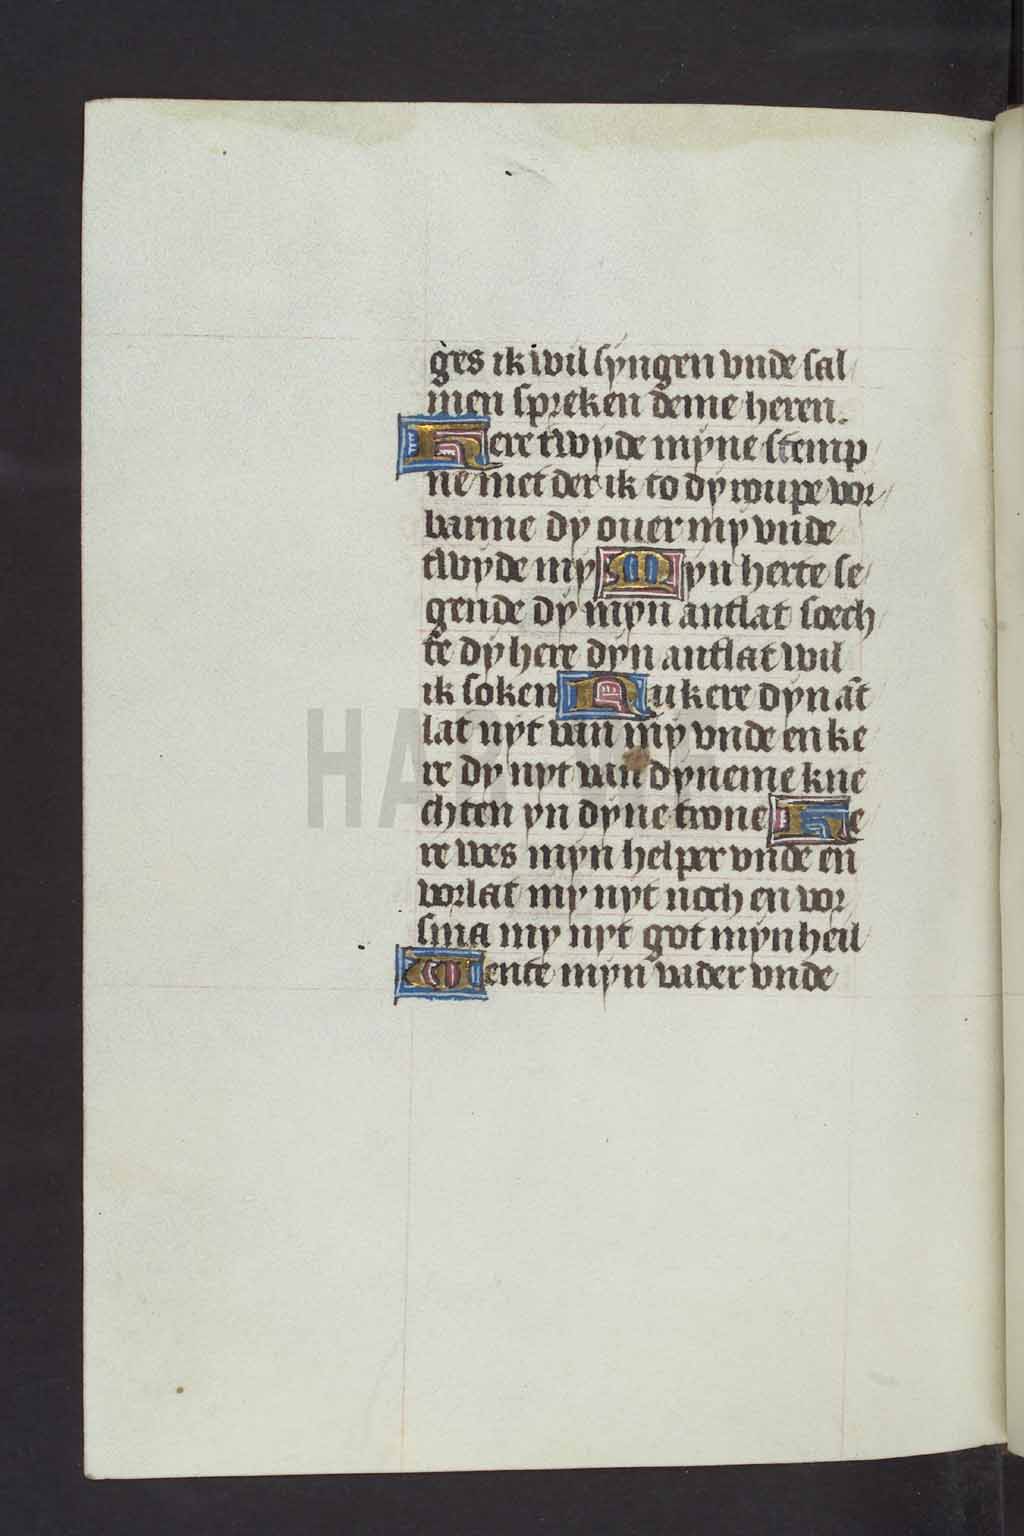 ges ik wil syngen vnde sal
men spreken deme heren.
Here twyde myne stemp
ne met der ik to dy roupe vor
barme dy ouer my vnde
twyde my Myn herte se
gende dy myn antlat soech
te dy here dyn antlat wil
ik soken Nu kere dyn āt
lat nyt van my vnde en ke
re dy nyt van dyneme kne
chten yn dyne trone He
re wes myn helper vnde en
vorlat my nyt noch en vor
sma my nyt got myn heil
Wente myn vader vnde